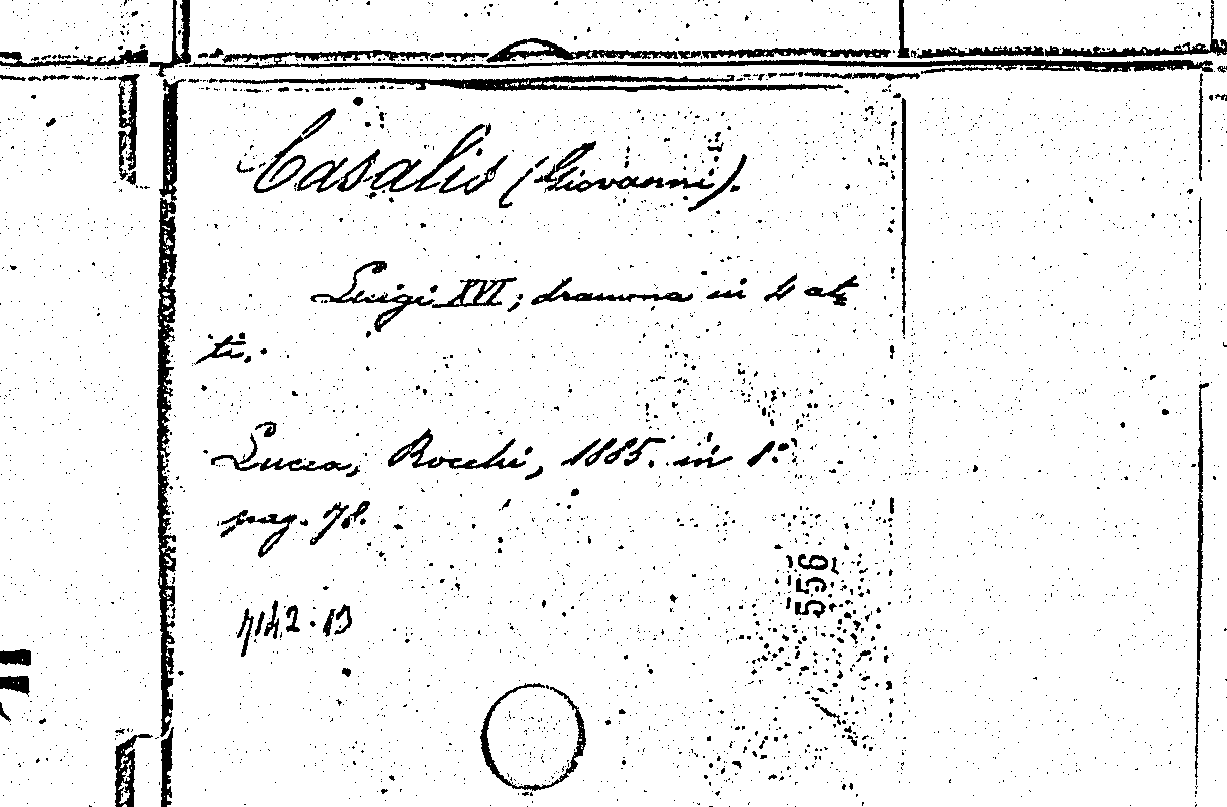 Casalis (Giovanni).
Luigi XVI; dramma in 4 at
ti.
Lucca, Rocchi, 1885. in 8°
pag. 78.
7142.13
556